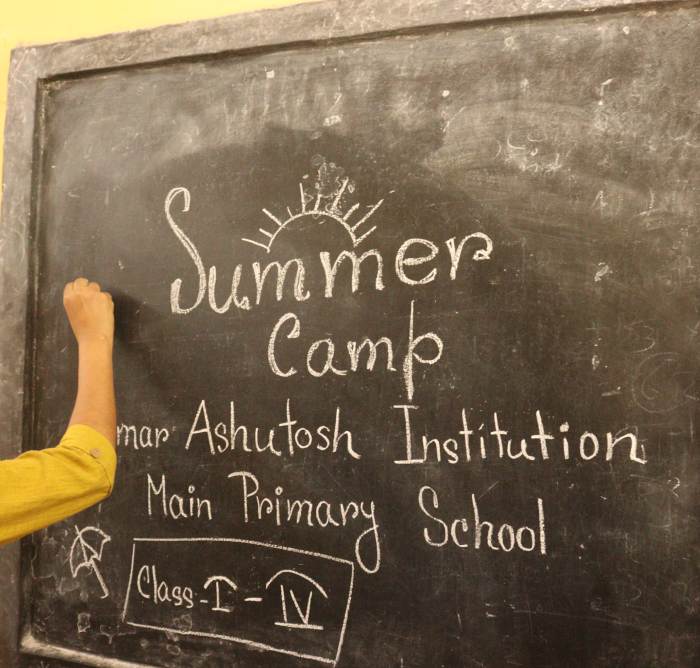 Summer
Camp
mar Ashutosh Institution
Main Primary School
Class - I - IV